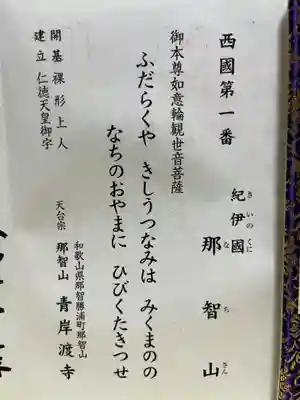 西國第一番
紀伊國 那智山
きいのくに なちさん
御本尊如意輪観世音菩薩
ふだらくや きしうつなみは みくまのの
なちのおやまに ひびくたきつせ
和歌山県那智勝浦町那智山
天台宗 那智山 青岸渡寺
開基 裸形上人
建立 仁徳天皇御宇